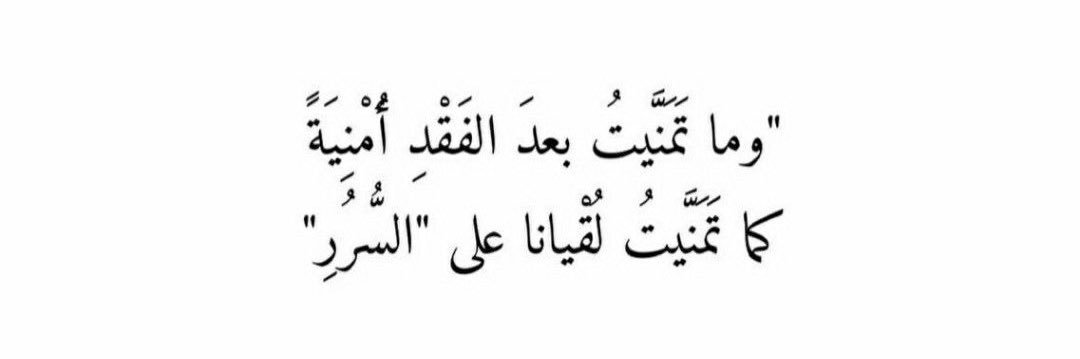 "وما تَمَنَّيتُ بعدَ الفَقْدِ أُمْنِيَةً
كما تَمَنَّيتُ لُقْيانا على "السُّرُرِ"